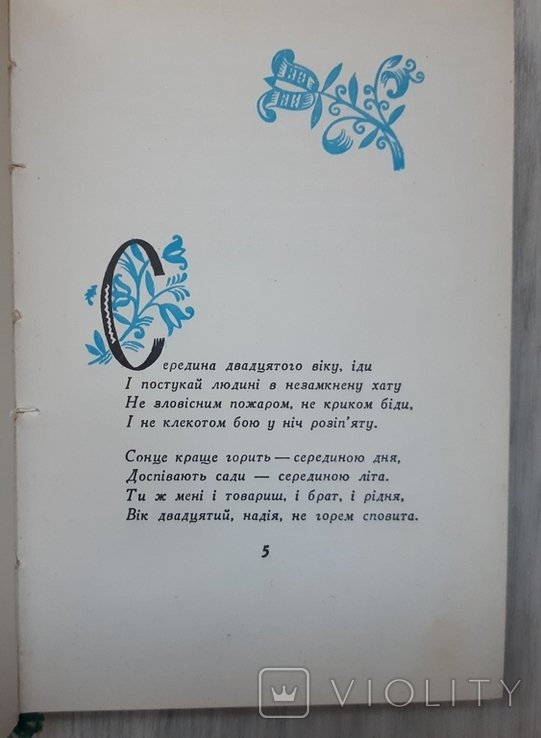 Середина двадцятого віку, іди
І постукай людині в незамкнену хату
Не зловісним пожаром, не криком біди,
І не клекотом бою у ніч розіп'яту.
Сонце краще горить — серединою дня,
Доспівають сади — серединою літа.
Ти ж мені і товариш, і брат, і рідня,
Вік двадцятий, надія, не горем сповита.
5
VIOLITY